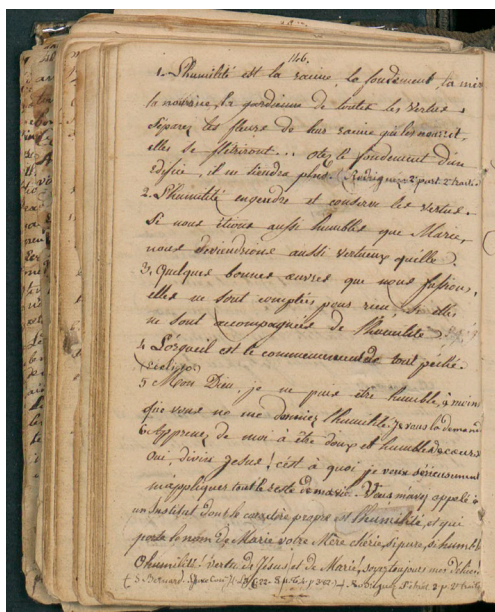 146.
1. L'humilité est la racine, le fondement, la mère
la nourrice, la gardienne de toutes les vertus.
Séparez les fleurs de leur racine qui les nourrit,
elles se flétriront... otez le fondement d'un
édifice, il ne tiendra plus. (Rodriguez 2e part. 2e traité.
2. L'humilité engendre et conserve les vertus.
Si nous étions aussi humbles que Marie,
nous deviendrions aussi vertueux qu'elle.
3. Quelques bonnes œuvres que nous fassions,
elles ne sont comptées pour rien, si elles
ne sont accompagnées de l'humilité.
4. L'orgueil est le commencement de tout péché.
Eccli. 10.
5. Mon Dieu, je ne puis être humble, à moins
que vous ne me donniez l'humilité. Je vous la demande
6. Apprenez de moi à être doux et humbles de cœur.
Oui, divin Jésus! c'est à quoi je veux sérieusement
m'appliquer tout le reste de ma vie. Vous m'avez appelé à
un Institut dont le caractère propre est l'humilité, et qui
porte le nom de Marie votre Mère chérie, si pure, si humble
O humilité! vertu de Jésus et de Marie, soyez toujours mes délices.
(S. Bernard